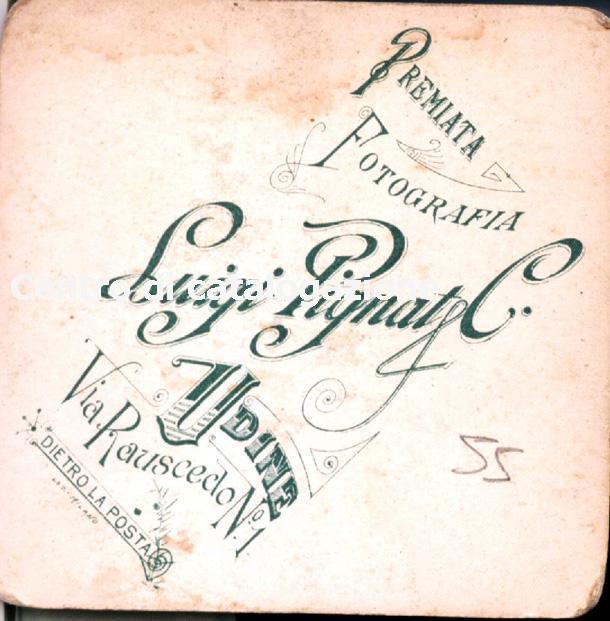 PREMIATA
FOTOGRAFIA
Luigi Pignat & C.
Centro di catalogazione
UDINE
Via Rauscedo No. 1
DIETRO LA POSTA
55